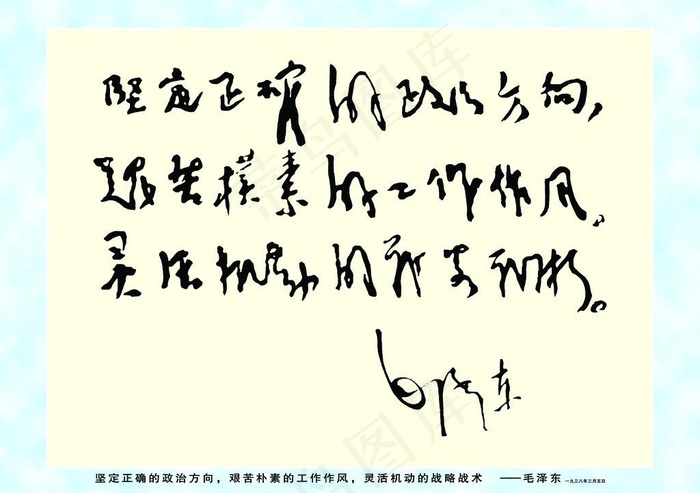 坚定正确的政治方向，
艰苦樸素的工作作风。
灵活机动的战略战术。
毛泽东
坚定正确的政治方向，艰苦朴素的工作作风，灵活机动的战略战术 ——毛泽东 一九三八年三月五日